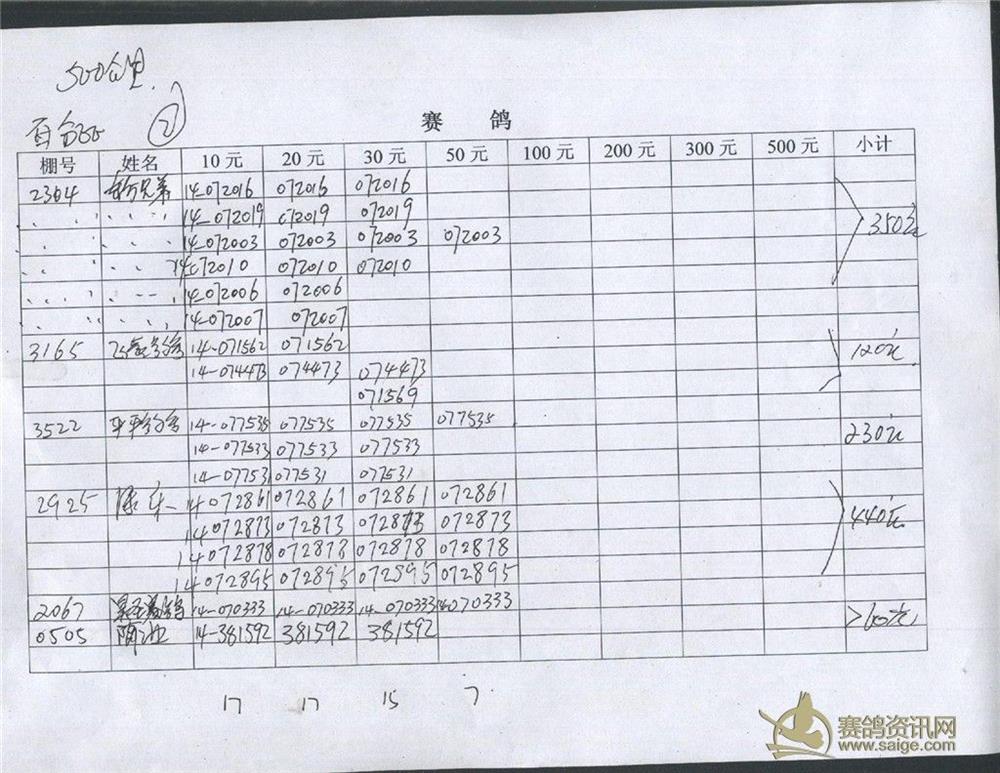 500公里
② 
赛 鸽
棚号 姓名 10元 20元 30元 50元 100元 200元 300元 500元 小计
2304 兄弟 14-072016 072016 072016
14-072019 072019 072019
14-072003 072003 072003 072003 350元
14-072010 072010 072010
14-072006 072006
14-072007 072007
3165 14-071562 071562 120元
14-074473 074473 074473
071569
3522 14-077535 077535 077535 077535
14-077533 077533 077533 230元
14-077531 077531 077531
2925 14072861 072861 072861 072861
14072873 072873 072873 072873 440元
14072878 072878 072878 072878
14072895 072895 072895 072895
2067 14-070333 14-070333 14-070333 14070333
0505 14-381592 381592 381592
17 17 15 7
赛鸽资讯网
www.saige.com